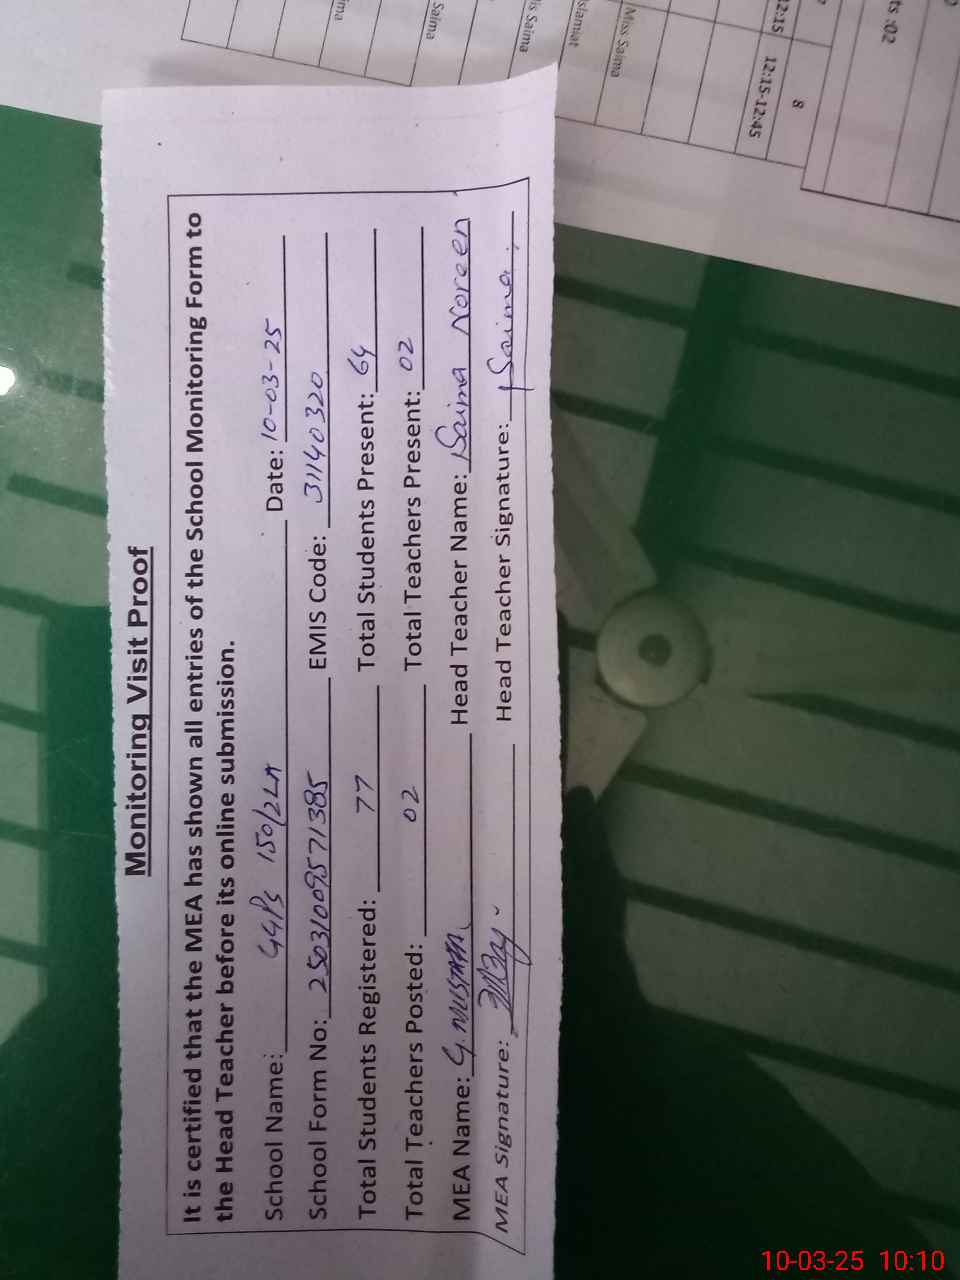 Monitoring Visit Proof
It is certified that the MEA has shown all entries of the School Monitoring Form to
the Head Teacher before its online submission.
School Name: GGPS 150/2LA Date: 10-03-25
School Form No: 25031009571385 EMIS Code: 31140320
Total Students Registered: 77 Total Students Present: 64
Total Teachers Posted: 02 Total Teachers Present: 02
MEA Name: G. MUSTAFA Head Teacher Name: Saima Noreen
MEA Signature: Head Teacher Signature: Saima
ts :02
8
12:15 12:15-12:45
Miss Saima
slamiat
is Saima
Saima
ima
10-03-25 10:10